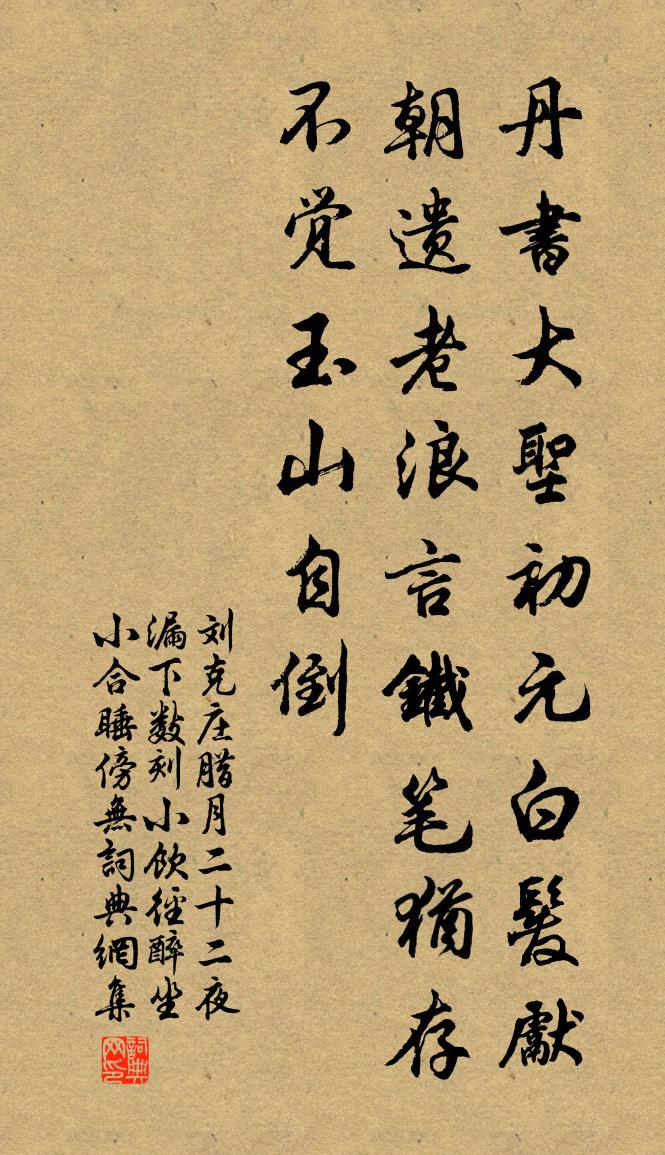 丹書大聖初元白髮獻
朝遺老浪言鐵笔猶存
不觉玉山自倒
刘克庄腊月二十二夜
漏下数刻小飲徑醉坐
小合睡傍無詞典網集
詞典网印